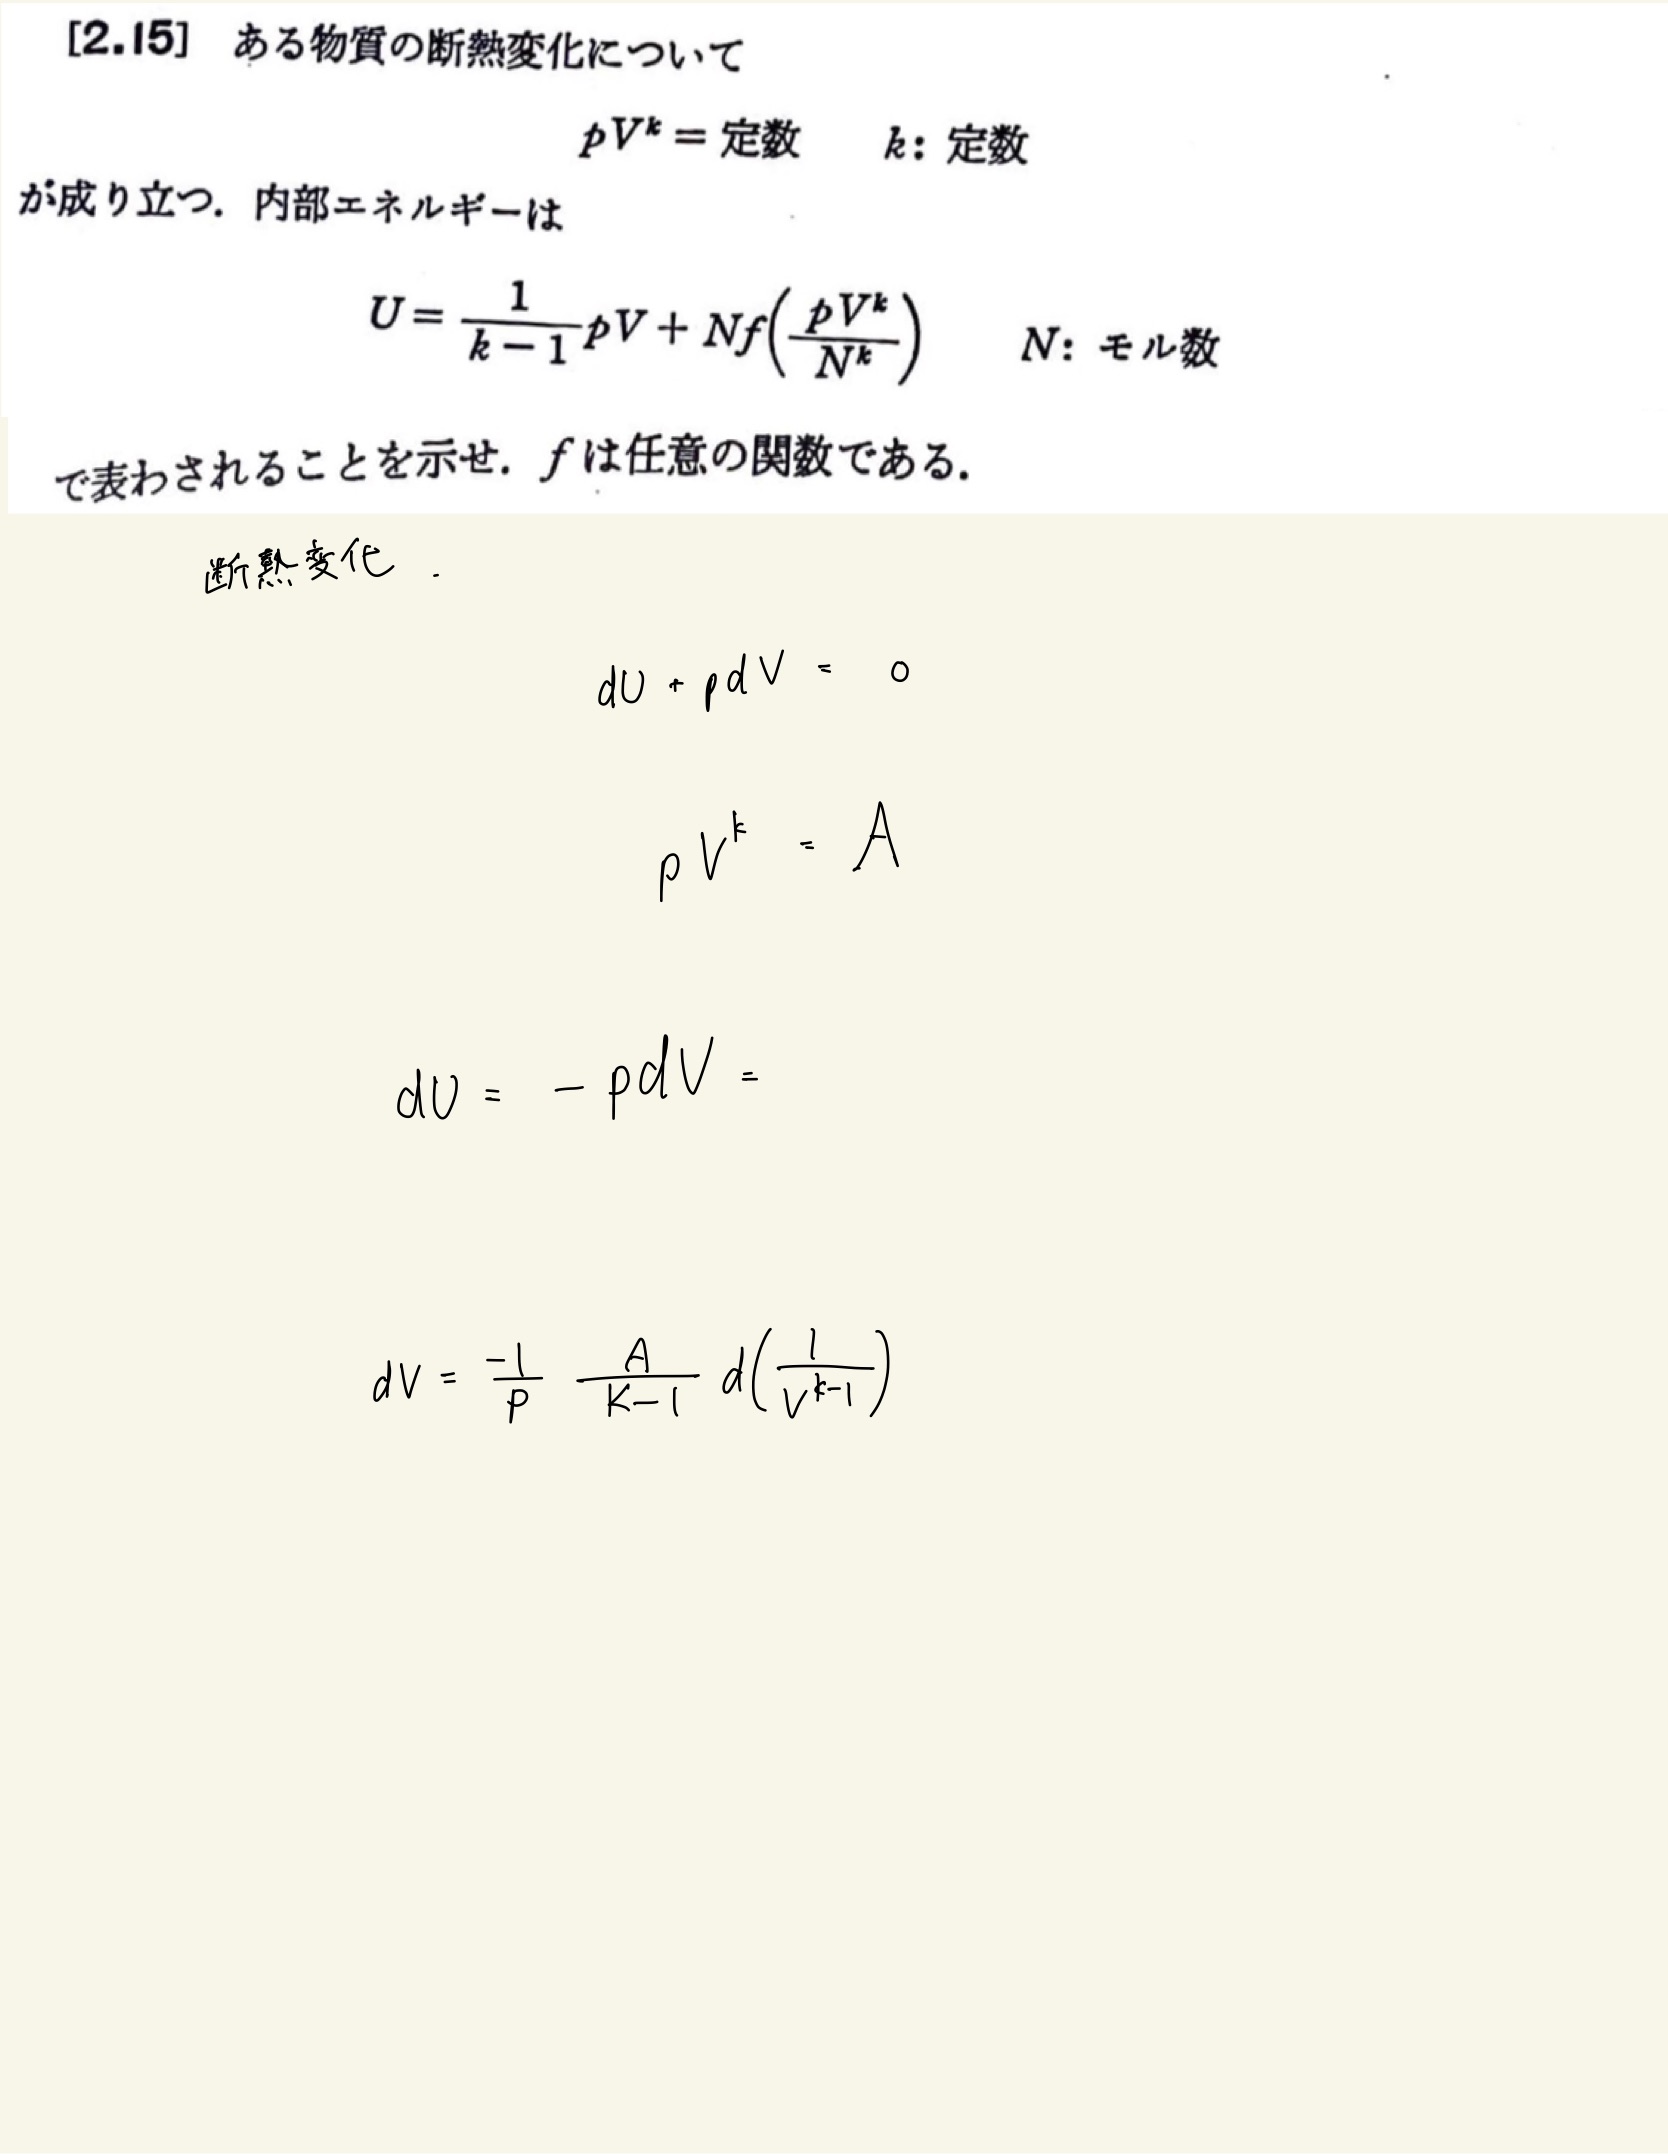 [2.15] ある物質の断熱変化について
pV^k = 定数 k: 定数
が成り立つ. 内部エネルギーは
U = \frac{1}{k-1} pV + Nf\left(\frac{pV^k}{N^k}\right) N: モル数
で表わされることを示せ. f は任意の関数である.
断熱変化.
dU + pdV = 0
pV^k = A
dU = - pdV =
dV = \frac{-1}{p} \frac{A}{K-1} d\left(\frac{1}{V^{k-1}}\right)